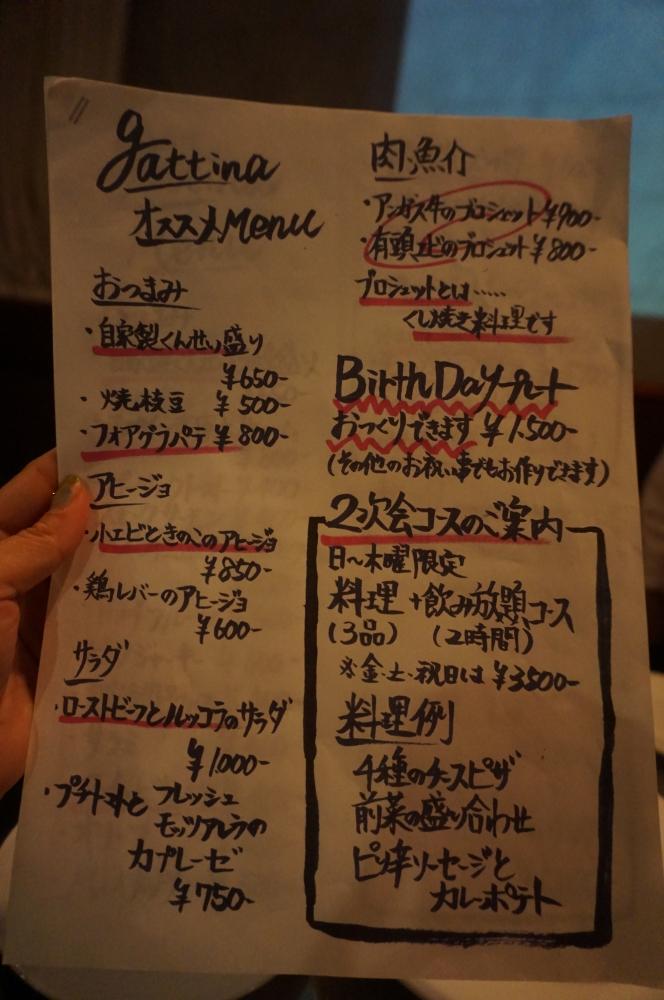 gattina
オススメMenu
おつまみ
・自家製くんせい盛り
¥650-
・焼枝豆 ¥500-
・フォアグラパテ ¥800-
アヒージョ
・小エビときのこのアヒージョ
¥850-
・鶏レバーのアヒージョ
¥600-
サラダ
・ローストビーフとルッコラのサラダ
¥1,000-
・プチトマトと フレッシュ
モッツァレラの
カプレーゼ
¥750-
肉・魚介
・アンガス牛のブロシェット ¥900-
・有頭エビのブロシェット ¥800-
ブロシェットとは……
くし焼き料理です
BirthDayプレート
おつくりできます ¥1,500-
(その他のお祝い事でもお作りできます)
2次会コースのご案内
日〜木曜限定
料理+飲み放題コース
(3品) (2時間)
※金・土・祝日は ¥3500-
料理例
4種のチーズピザ
前菜の盛り合わせ
ピリ辛ソーセージと
カレーポテト